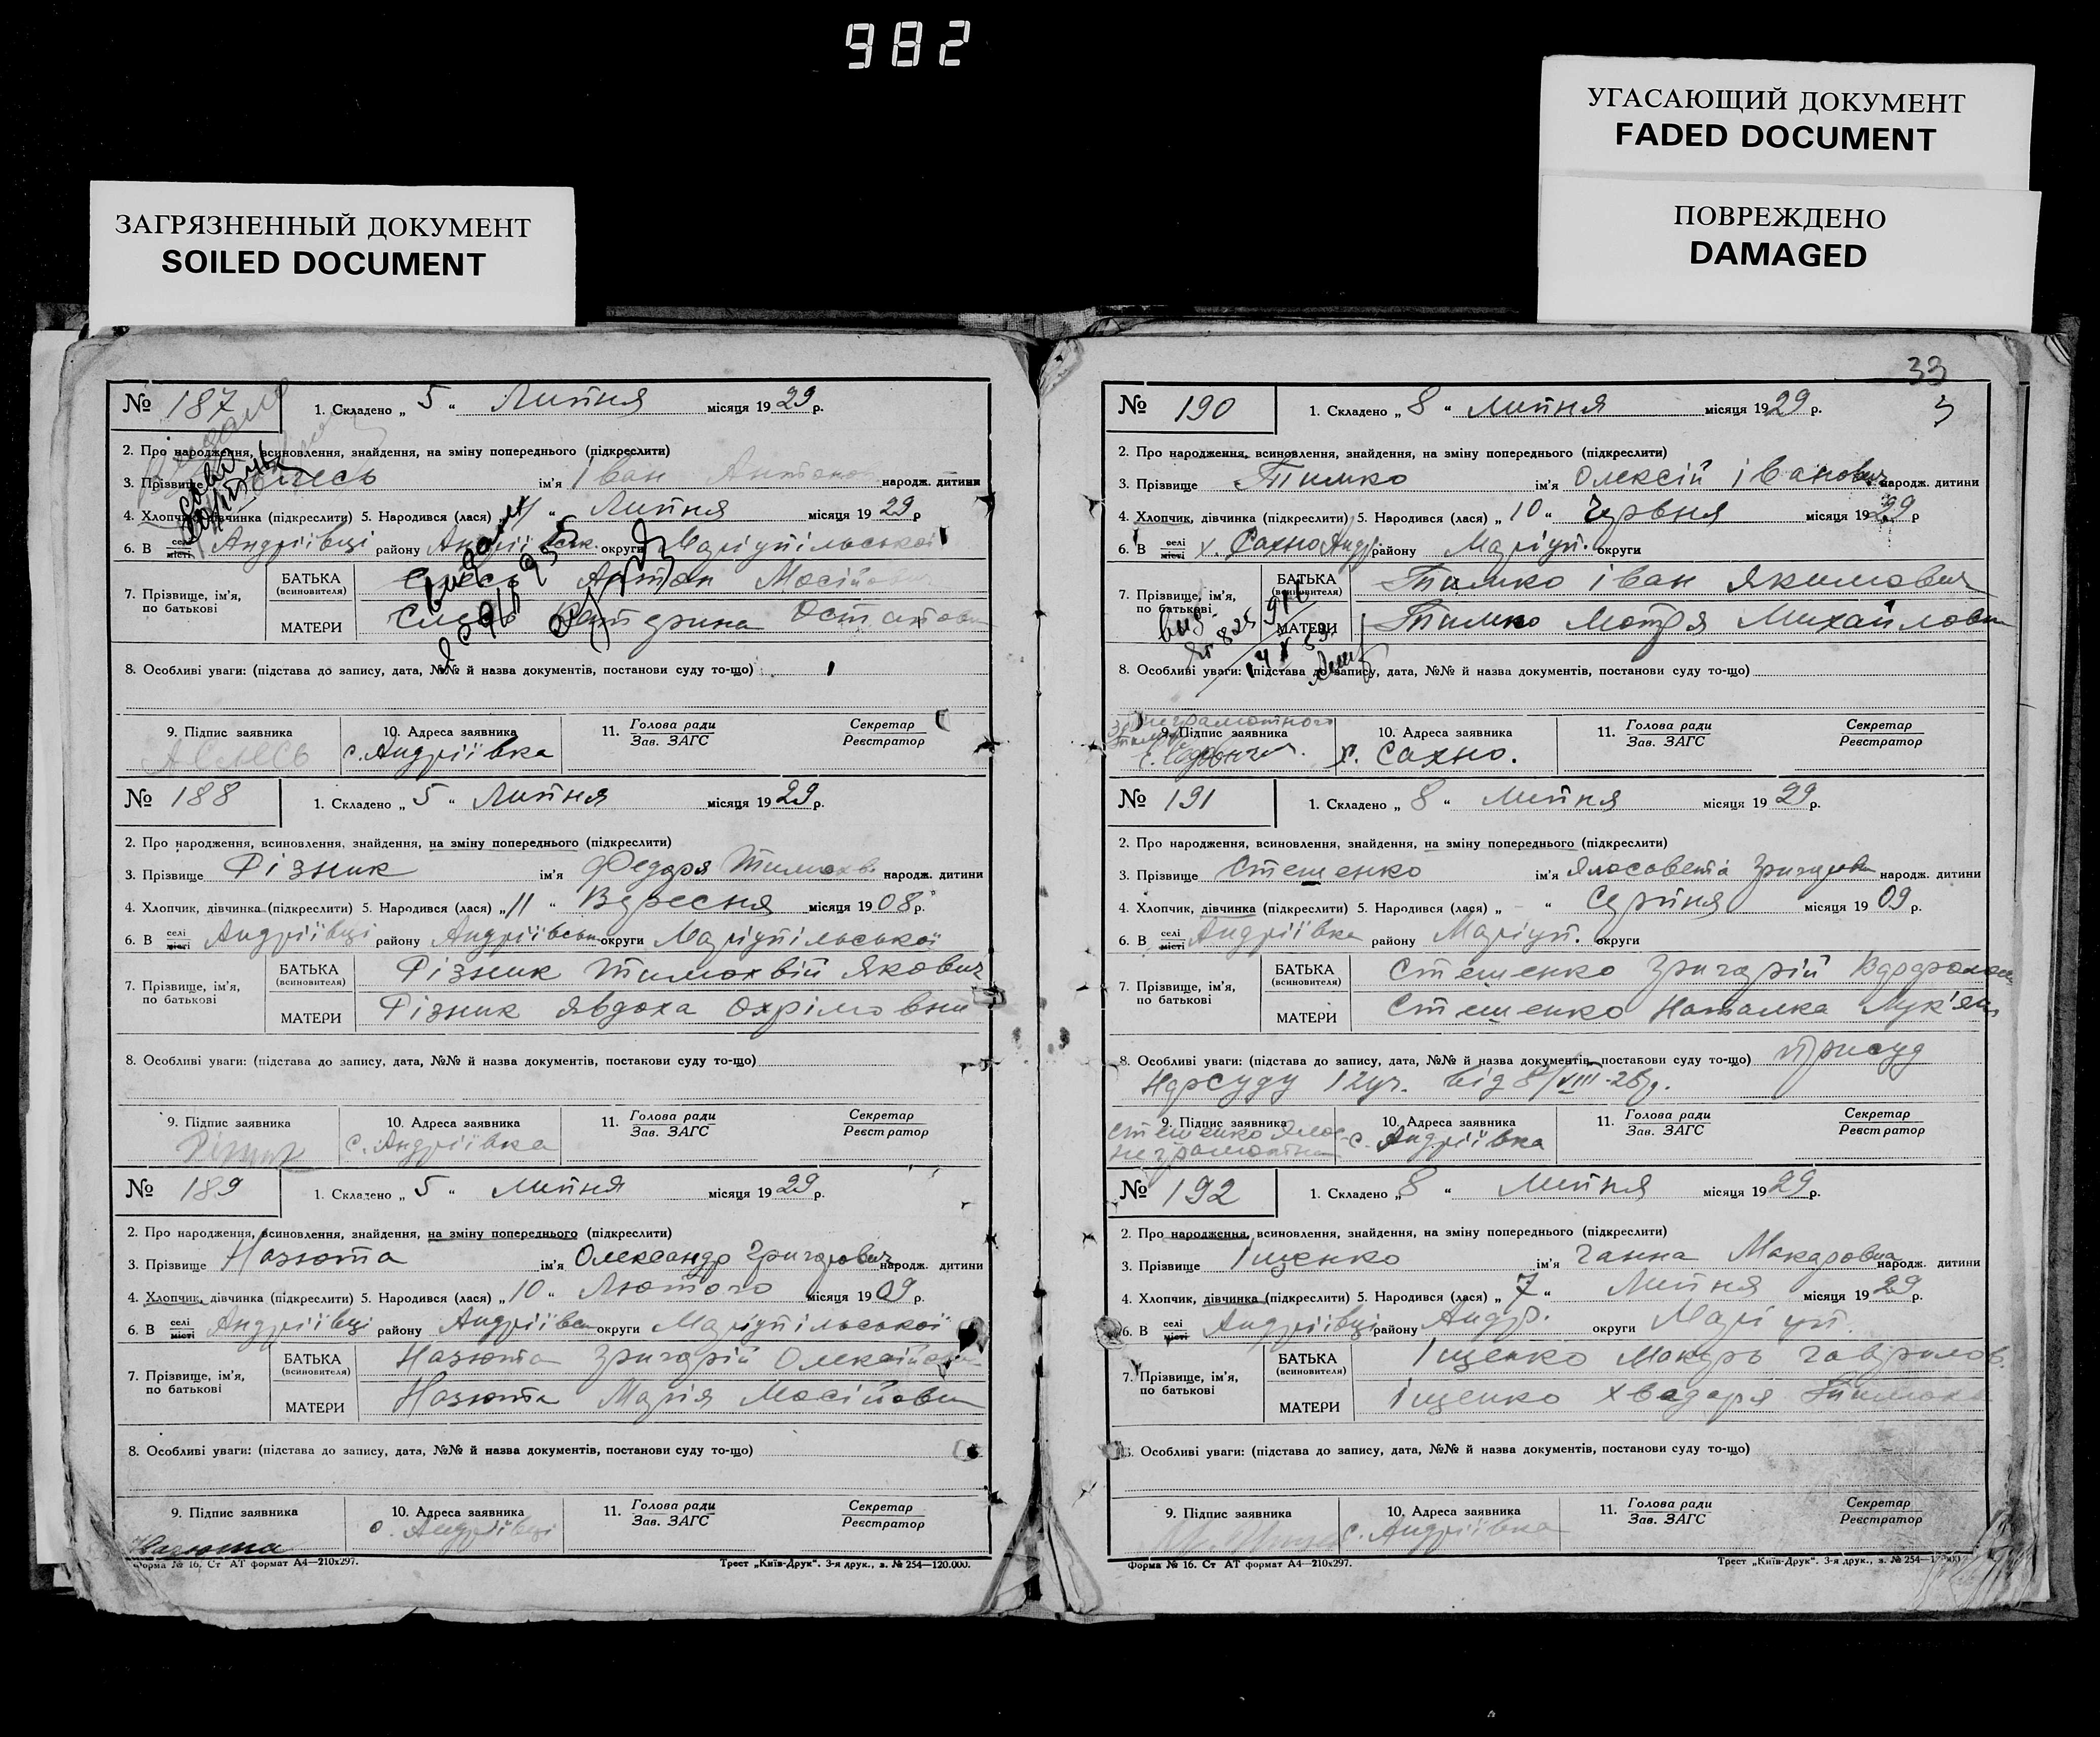 982
УГАСАЮЩИЙ ДОКУМЕНТ
FADED DOCUMENT
ЗАГРЯЗНЕННЫЙ ДОКУМЕНТ
SOILED DOCUMENT
ПОВРЕЖДЕНО
DAMAGED
№ 187 1. Складено „ 5 “ Липня місяця 1929 р.
2. Про народження, всиновлення, знайдення, на зміну попереднього (підкреслити)
3. Прізвище ім'я Іван народж. дитини
4. Хлопчик, дівчинка (підкреслити) 5. Народився (лася) „ “ Липня місяця 1929 р
6. В селі місті Андріївці району округи Маріупільської
7. Прізвище, ім'я, по батькові БАТЬКА (всиновителя) Слесь Антон Мосійович
МАТЕРИ Слесь Катерина
8. Особливі уваги: (підстава до запису, дата, №№ й назва документів, постанови суду то-що)
9. Підпис заявника 10. Адреса заявника 11. Голова ради Зав. ЗАГС Секретар Реєстратор
А Слесь с. Андріївка
№ 188 1. Складено „ 5 “ Липня місяця 1929 р.
2. Про народження, всиновлення, знайдення, на зміну попереднього (підкреслити)
3. Прізвище Різник ім'я Федоря Тимохв. народж. дитини
4. Хлопчик, дівчинка (підкреслити) 5. Народився (лася) „ 11 “ Вересня місяця 1908 р.
6. В селі місті Андріївці району Андріївськ округи Маріупільської
7. Прізвище, ім'я, по батькові БАТЬКА (всиновителя) Різник Тимохвій Якович
МАТЕРИ Різник Явдоха Охрімовни
8. Особливі уваги: (підстава до запису, дата, №№ й назва документів, постанови суду то-що)
9. Підпис заявника 10. Адреса заявника 11. Голова ради Зав. ЗАГС Секретар Реєстратор
Різник с. Андріївка
№ 189 1. Складено „ 5 “ Липня місяця 1929 р.
2. Про народження, всиновлення, знайдення, на зміну попереднього (підкреслити)
3. Прізвище Назюта ім'я Олександр Григорович народж. дитини
4. Хлопчик, дівчинка (підкреслити) 5. Народився (лася) „ 10 “ Лютого місяця 1909 р.
6. В селі місті Андріївці району Андріївсь округи Маріупільської
7. Прізвище, ім'я, по батькові БАТЬКА (всиновителя) Назюта Григорій
МАТЕРИ Назюта Марія Мосійовн
8. Особливі уваги: (підстава до запису, дата, №№ й назва документів, постанови суду то-що)
9. Підпис заявника 10. Адреса заявника 11. Голова ради Зав. ЗАГС Секретар Реєстратор
Назюта с. Андріївці
Форма № 16. Ст АТ формат А4—210х297. Трест „Київ-Друк“. 3-я друк., з. № 254—120.000.
33
№ 190 1. Складено „ 8 “ Липня місяця 1929 р.
2. Про народження, всиновлення, знайдення, на зміну попереднього (підкреслити)
3. Прізвище Тимко ім'я Олексій Іванович народж. дитини
4. Хлопчик, дівчинка (підкреслити) 5. Народився (лася) „ 10 “ Червня місяця 1929 р
6. В селі місті х. Сахно Андр. району Маріуп. округи
7. Прізвище, ім'я, по батькові БАТЬКА (всиновителя) Тимко Іван Якимович
МАТЕРИ Тимко Мотря Михайловн
8. Особливі уваги: (підстава до запису, дата, №№ й назва документів, постанови суду то-що)
9. Підпис заявника 10. Адреса заявника 11. Голова ради Зав. ЗАГС Секретар Реєстратор
х. Сахно.
№ 191 1. Складено „ 8 “ Липня місяця 1929 р.
2. Про народження, всиновлення, знайдення, на зміну попереднього (підкреслити)
3. Прізвище Стешенко ім'я Ялосовета народж. дитини
4. Хлопчик, дівчинка (підкреслити) 5. Народився (лася) „ - “ Серпня місяця 1909 р.
6. В селі місті Андріївка району Маріуп. округи
7. Прізвище, ім'я, по батькові БАТЬКА (всиновителя) Стешенко Григорій
МАТЕРИ Стешенко Наталка Лук'ян
8. Особливі уваги: (підстава до запису, дата, №№ й назва документів, постанови суду то-що) Присуд
Нарсуду 12 уч. від 8/VIII-28 р.
9. Підпис заявника 10. Адреса заявника 11. Голова ради Зав. ЗАГС Секретар Реєстратор
Стешенко Ялос. неграмотна с. Андріївка
№ 192 1. Складено „ 8 “ Липня місяця 1929 р.
2. Про народження, всиновлення, знайдення, на зміну попереднього (підкреслити)
3. Прізвище Іщенко ім'я Ганна Макаровна народж. дитини
4. Хлопчик, дівчинка (підкреслити) 5. Народився (лася) „ 7 “ Липня місяця 1929 р.
6. В селі місті Андріївці району Андр. округи Маріуп.
7. Прізвище, ім'я, по батькові БАТЬКА (всиновителя) Іщенко Макарь Гаврилов.
МАТЕРИ Іщенко Хведоря Тимохв
8. Особливі уваги: (підстава до запису, дата, №№ й назва документів, постанови суду то-що)
9. Підпис заявника 10. Адреса заявника 11. Голова ради Зав. ЗАГС Секретар Реєстратор
с. Андріївка
Форма № 16. Ст АТ формат А4—210х297. Трест „Київ-Друк“. 3-я друк., з. № 254—